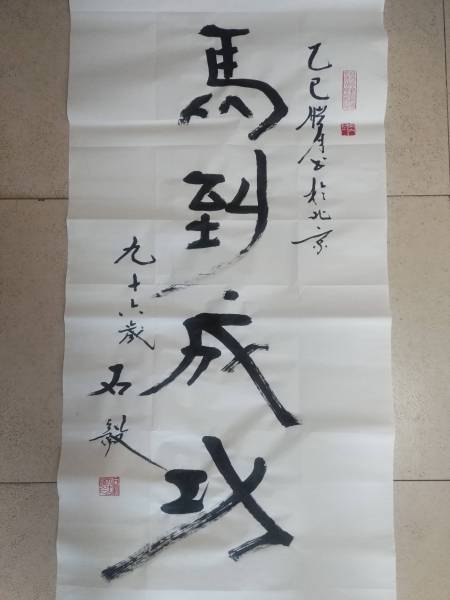 乙巳腊月书於北京
馬到成功
九十六歲
石毅